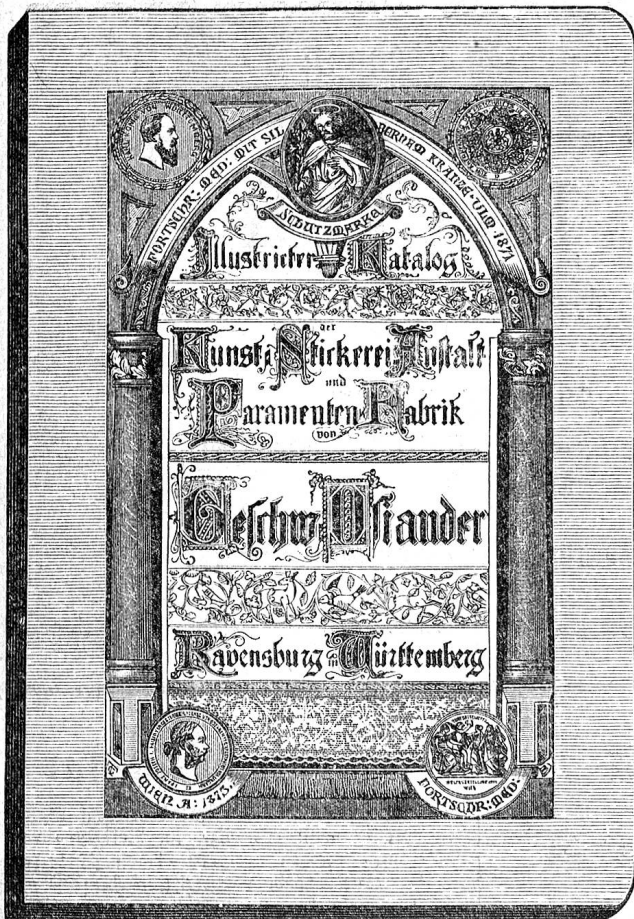 FORTSCHR: MED: MIT SILBERNEM KRANZE · ULM · 1871
SCHUTZMARKE
Illustrirter Katalog
der
Kunst-Stickerei-Anstalt
und
Paramenten-Fabrik
von
Geschw. Osiander
Ravensburg in Württemberg
WIEN A: 1873.
FORTSCHR: MED: